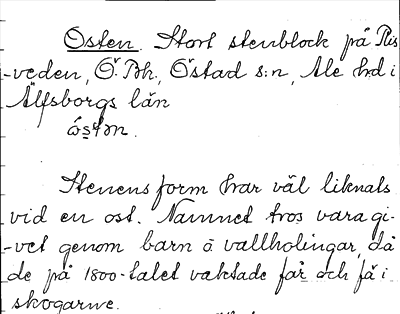 Osten. Stort stenblock på Ris-
-veden, Ö. Bh, Östad s:n, Ale hd i
Älfsborgs län
óstən.
Stenens form har väl liknats
vid en ost. Namnet tros vara gi-
-vet genom barn å vallhollingar, då
de på 1800-talet vaktade får och fä i
skogarne.